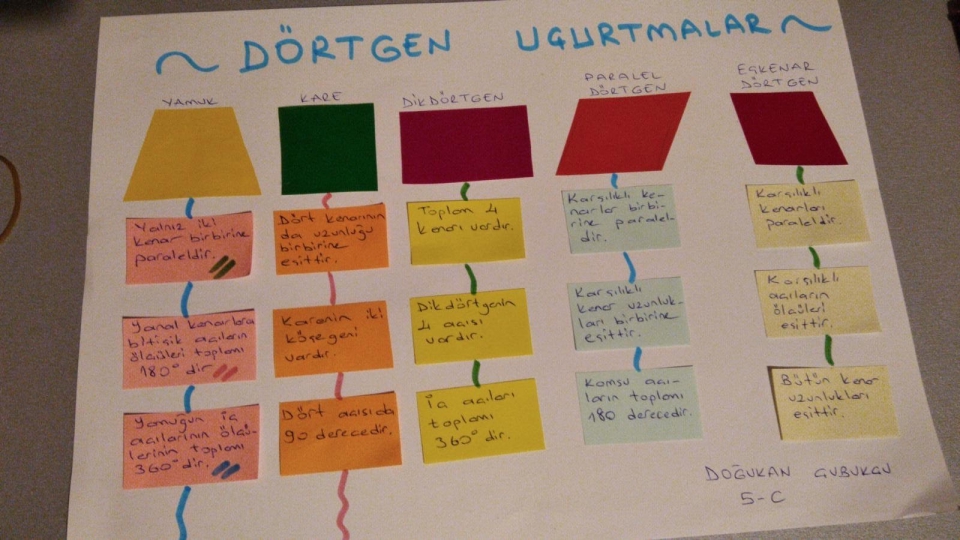 ~ DÖRTGEN UÇURTMALAR ~
YAMUK
Yalnız iki
kenar birbirine
paraleldir.
Yanal kenarlara
bitişik açıların
ölçüleri toplamı
180° dir.
Yamuğun iç
açılarının ölçü-
lerinin toplamı
360° dir.
KARE
Dört kenarının
da uzunluğu
birbirine
eşittir.
Karenin iki
köşegeni
vardır.
Dört açısıda
90 derecedir.
DİKDÖRTGEN
Toplam 4
kenarı vardır.
Dikdörtgenin
4 açısı
vardır.
İç açıları
toplamı
360° dir.
PARALEL
DÖRTGEN
Karşılıklı ke-
narlar birbi-
rine paralel-
dir.
Karşılıklı
kenar uzunluk-
ları birbirine
eşittir.
Komşu açı-
ların toplamı
180 derecedir.
EŞKENAR
DÖRTGEN
Karşılıklı
kenarları
paraleldir.
Karşılıklı
açıların
ölçüleri
eşittir.
Bütün kenar
uzunlukları
eşittir.
DOĞUKAN ÇUBUKÇU
5-C